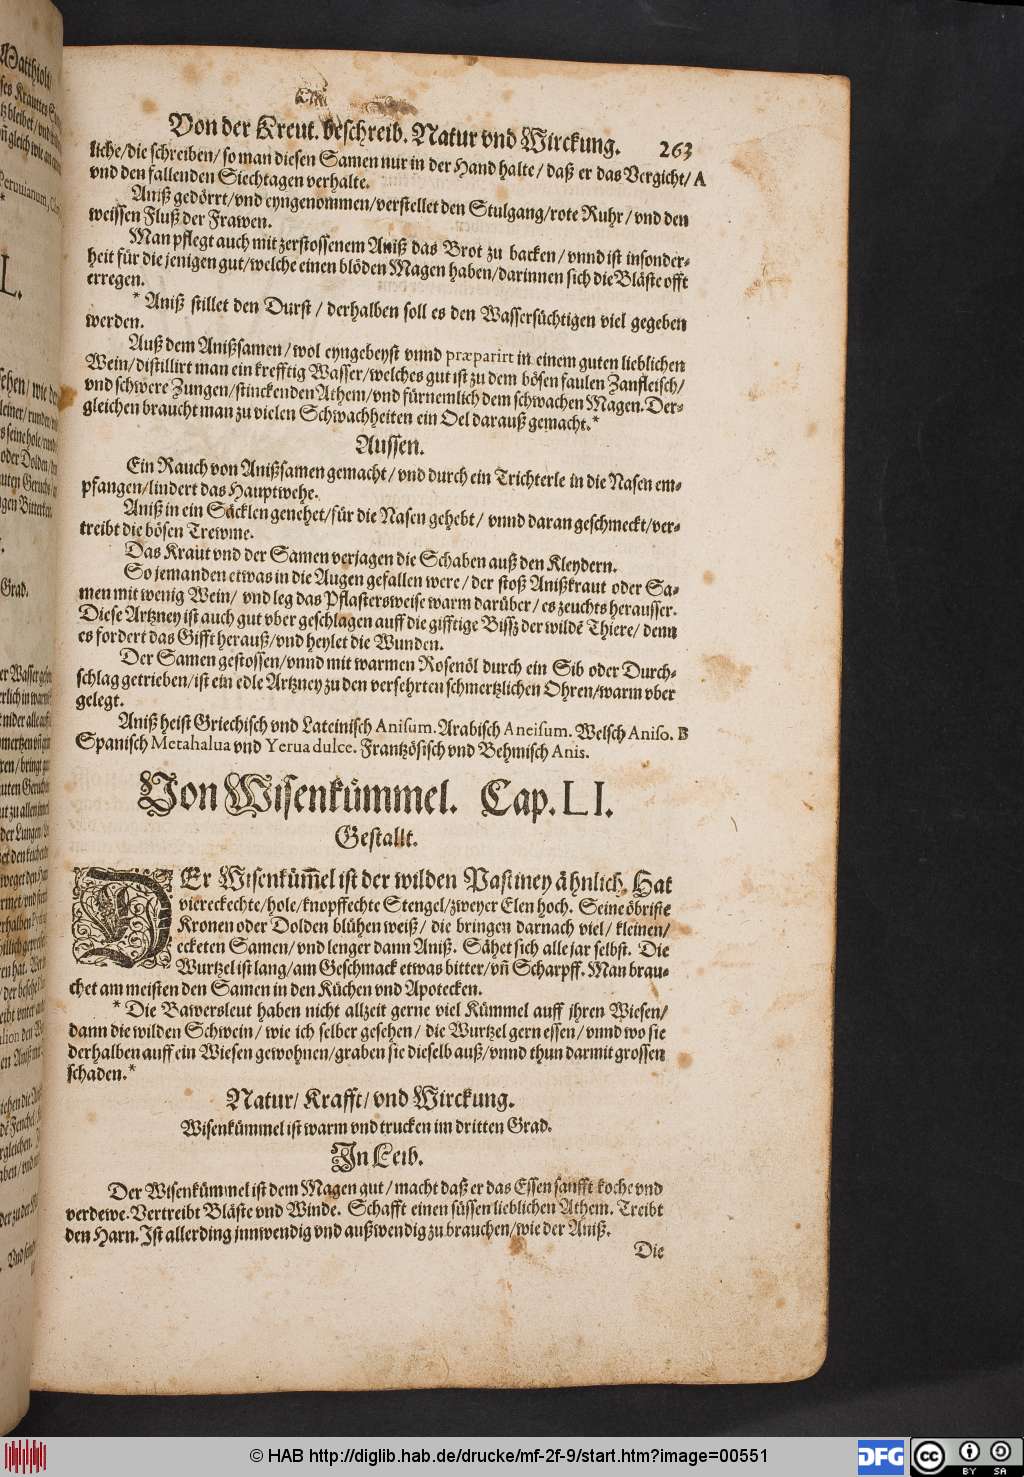 Von der Kreut. beschreib. Natur vnd Wirckung. 263
liche/die schreiben/ so man diesen Samen nur in der Hand halte/ daß er das Vergicht/ A
vnd den fallenden Siechtagen verhalte.
Aniß gedörrt/vnd eyngenommen/verstellet den Stulgang/rote Ruhr/ vnd den
weissen Fluß der Frawen.
Man pflegt auch mit zerstossenem Aniß das Brot zu backen/ vnnd ist insonder-
heit für die jenigen gut/welche einen blöden Magen haben/darinnen sich die Bläste offt
erregen.
* Aniß stillet den Durst / derhalben soll es den Wassersüchtigen viel gegeben
werden.
Auß dem Anißsamen/ wol eyngebeyst vnnd præparirt in einem guten lieblichen
Wein/distillirt man ein krefftig Wasser/welches gut ist zu dem bösen faulen Zanfleisch/
vnd schwere Zungen/stinckenden Athem/vnd fürnemlich dem schwachen Magen. Der-
gleichen braucht man zu vielen Schwachheiten ein Oel darauß gemacht.*
Aussen.
Ein Rauch von Anißsamen gemacht/ vnd durch ein Trichterle in die Nasen em-
pfangen/lindert das Hauptwehe.
Aniß in ein Säcklen genehet/für die Nasen gehebt/ vnnd daran geschmeckt/ver-
treibt die bösen Trewme.
Das Kraut vnd der Samen verjagen die Schaben auß den Kleydern.
So jemanden etwas in die Augen gefallen were/ der stoß Anißkraut oder Sa-
men mit wenig Wein/ vnd leg das Pflastersweise warm darüber/ es zeuchts herausser.
Diese Artzney ist auch gut vber geschlagen auff die gifftige Bissz der wildē Thiere/ denn
es fordert das Gifft herauß/vnd heylet die Wunden.
Der Samen gestossen/vnnd mit warmen Rosenöl durch ein Sib oder Durch-
schlag getrieben/ist ein edle Artzney zu den versehrten schmertzlichen Ohren/warm vber
gelegt.
Aniß heist Griechisch vnd Lateinisch Anisum. Arabisch Aneisum. Welsch Aniso. B
Spanisch Metahalua vnd Yerua dulce. Frantzösisch vnd Behmisch Anis.
Von Wisenkümmel. Cap. LI.
Gestallt.
DEr Wisenküm̄el ist der wilden Pastiney ähnlich. Hat
viereckechte/hole/knopffechte Stengel/zweyer Elen hoch. Seine öbriste
Kronen oder Dolden blühen weiß/ die bringen darnach viel/ kleinen/
ecketen Samen/ vnd lenger dann Aniß. Sähet sich alle jar selbst. Die
Wurtzel ist lang/am Geschmack etwas bitter/vñ Scharpff. Man brau-
chet am meisten den Samen in den Küchen vnd Apotecken.
* Die Bawersleut haben nicht allzeit gerne viel Kümmel auff jhren Wiesen/
dann die wilden Schwein/ wie ich selber gesehen/ die Wurtzel gern essen/ vnnd wo sie
derhalben auff ein Wiesen gewohnen/graben sie dieselb auß/vnnd thun darmit grossen
schaden.*
Natur/ Krafft/ vnd Wirckung.
Wisenkümmel ist warm vnd trucken im dritten Grad.
In Leib.
Der Wisenkümmel ist dem Magen gut/ macht daß er das Essen sanfft koche vnd
verdewe. Vertreibt Bläste vnd Winde. Schafft einen süssen lieblichen Athem. Treibt
den Harn. Ist allerding jnnwendig vnd außwendig zu brauchen/wie der Aniß.
Die
© HAB http://diglib.hab.de/drucke/mf-2f-9/start.htm?image=00551
DFG
cc BY SA